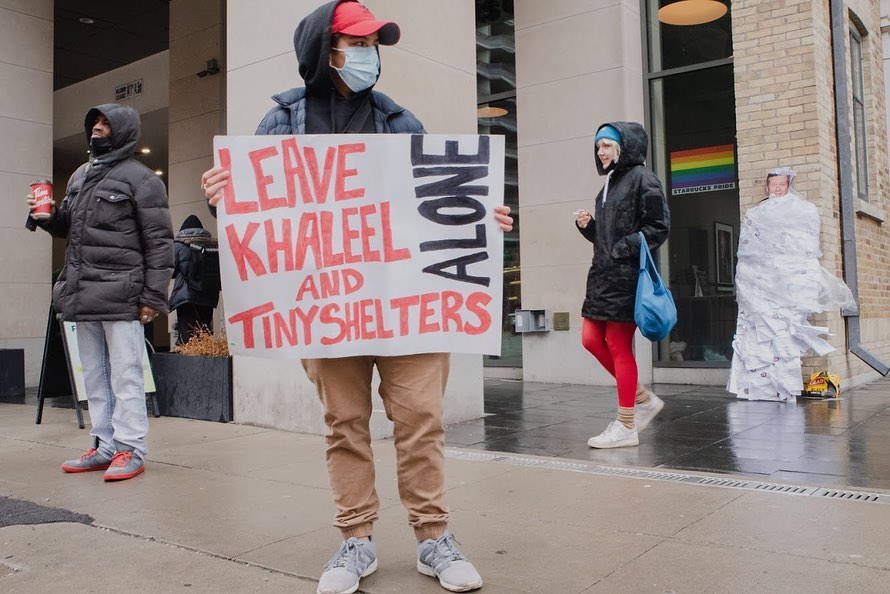 LEAVE
KHALEEL
AND
TINYSHELTERS
ALONE
Tim
STARBUCKS PRIDE